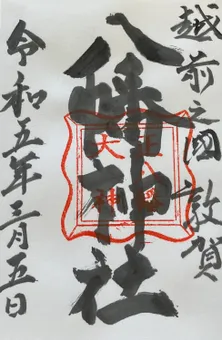 越前之國敦賀
八幡神社
令和五年三月五日